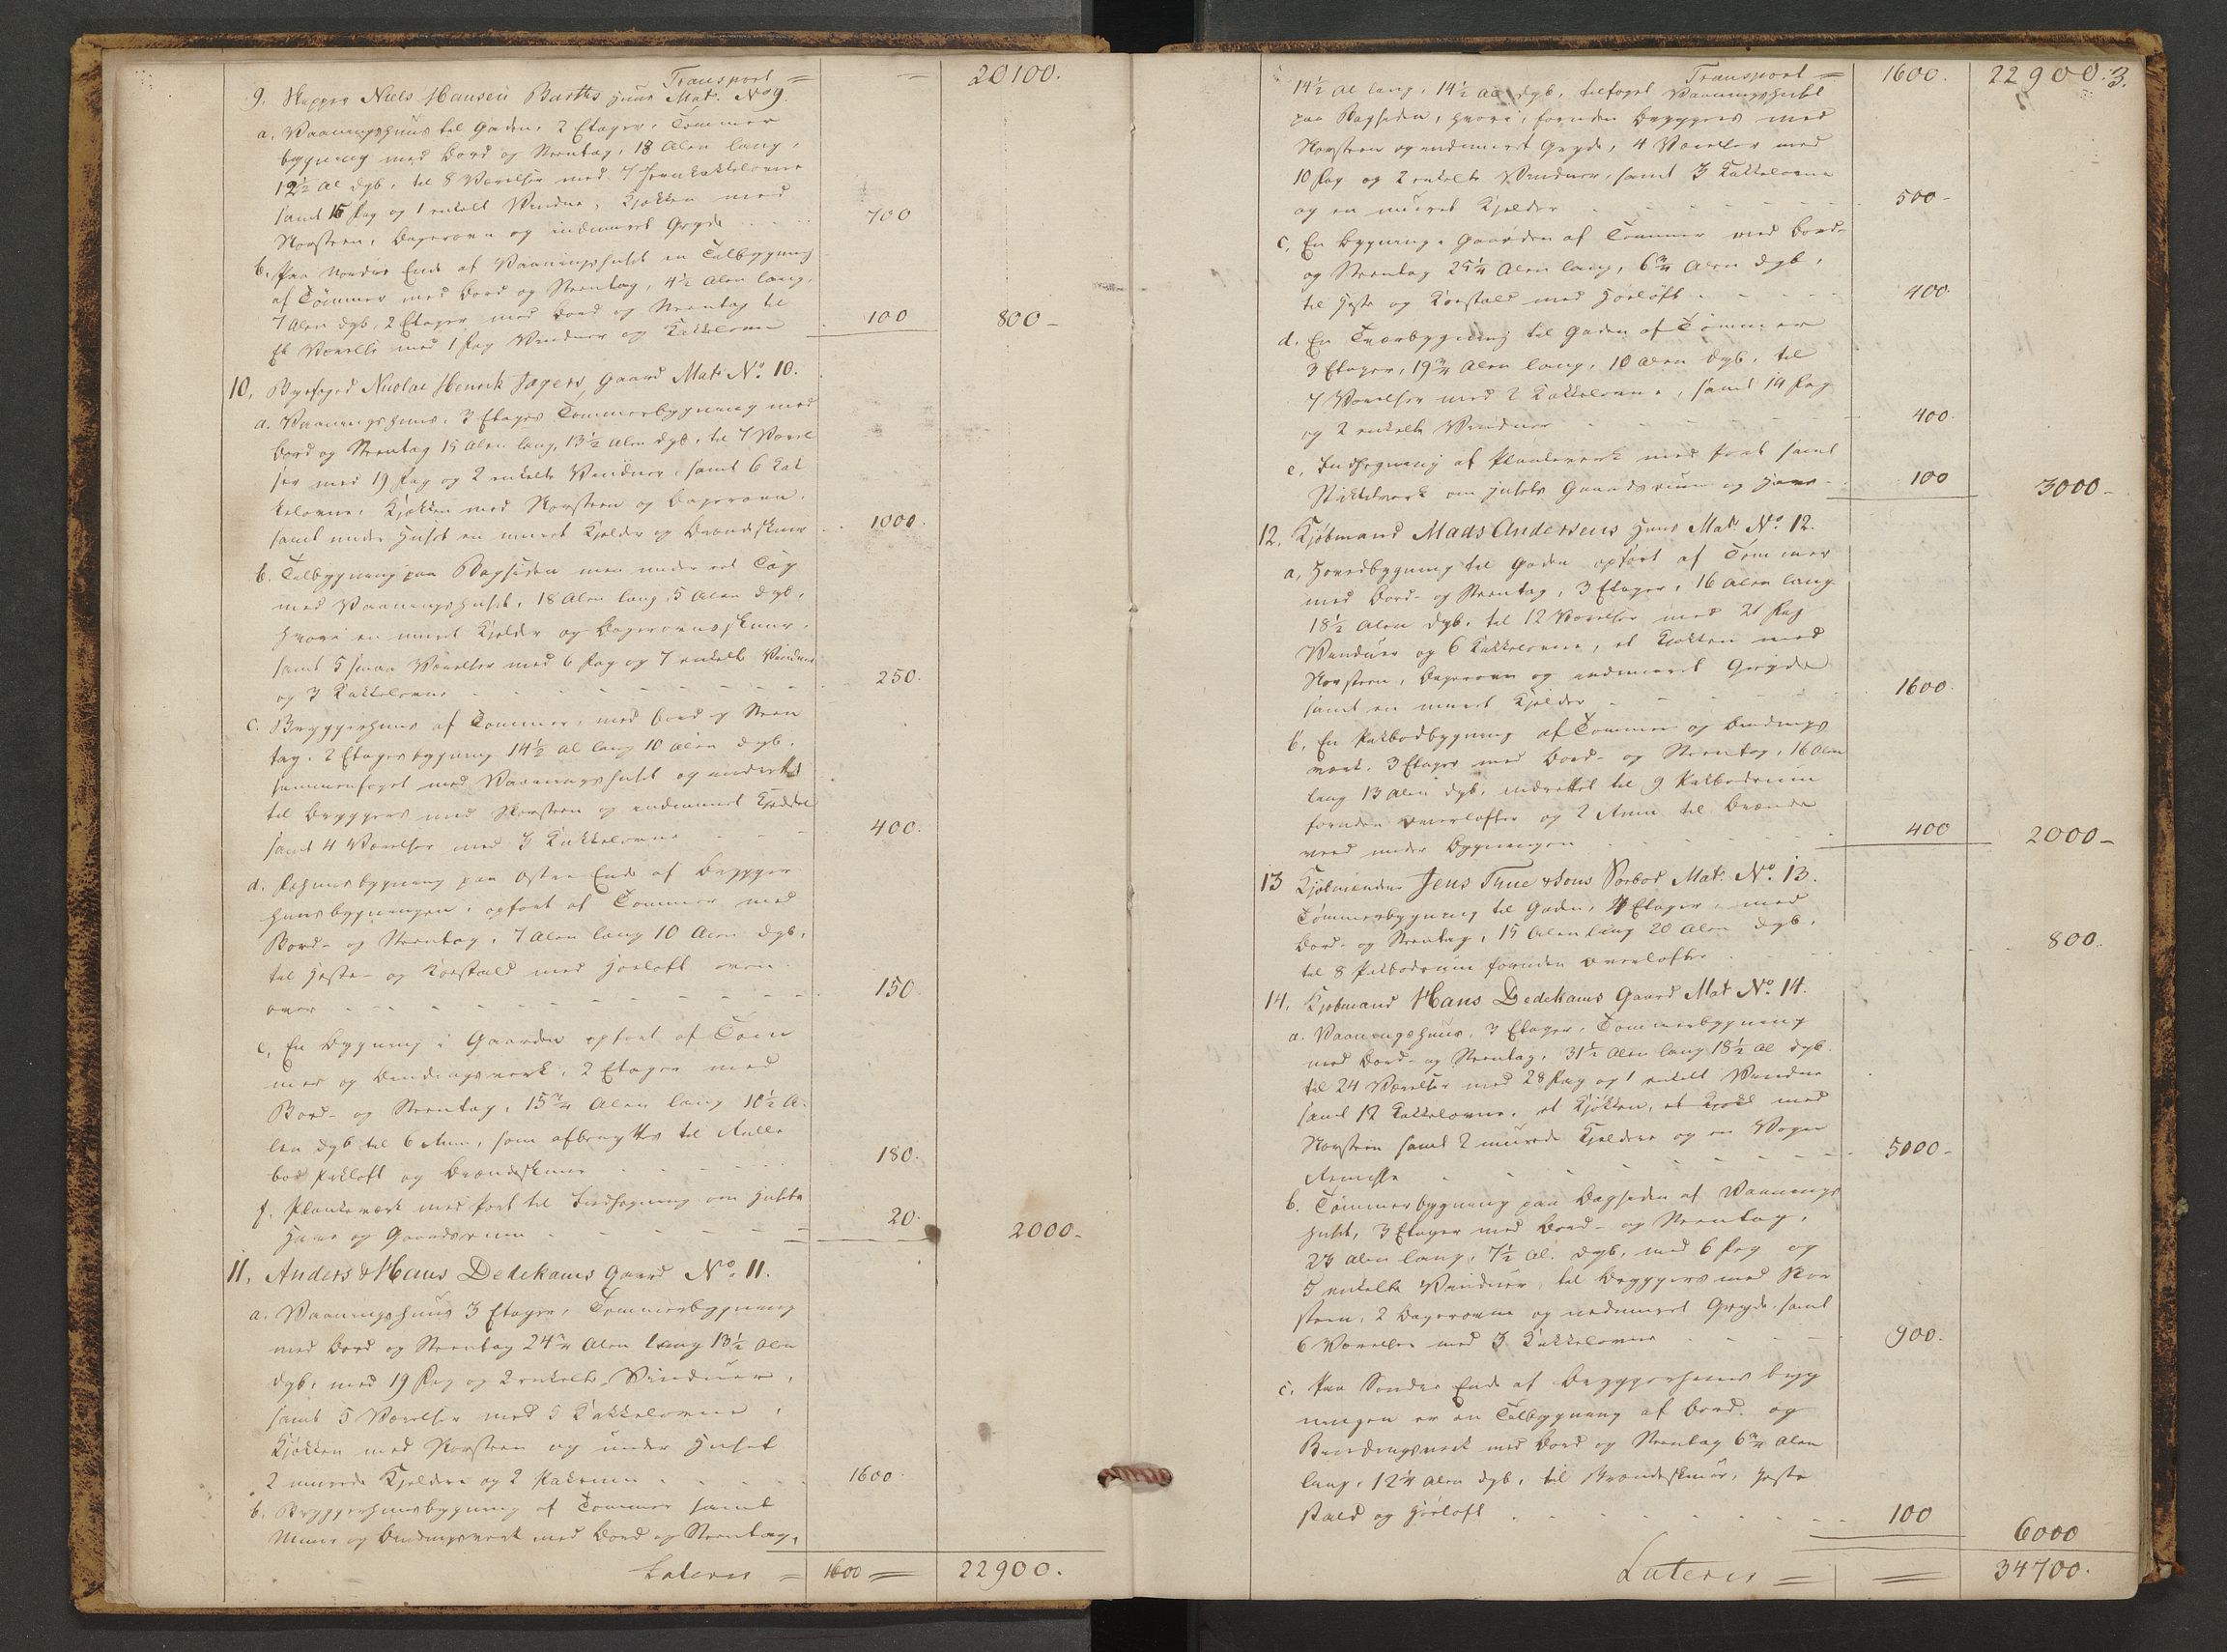 Transport = = 20100.
9. Skipper Niels Hansen Barths Huus Mat. No 9.
a. Vaaningshuus til Gaden, 2 Etager, Tømmer
bygning med Bord og Steentag, 18 Alen lang,
12½ Al dyb, til 8 Værelser med 7 Jernkakkelovne
samt 16 Fag og 1 enkelt Vindue, Kjøkken med
Skorsteen, Bagerovn og indmuret Gryde ... 700
b. Paa Nordre Ende af Vaaningshuset en Tilbygning
af Tømmer med Bord og Steentag, 4½ Alen lang,
7 Alen dyb, 2 Etager med Bord og Steentag til
Et Værelse med 1 Fag Vinduer og Kakkelovn 100 800 –
10. Byefoged Nicolai Henrik Jagers Gaard Mat. No. 10.
a. Vaaningshuus, 3 Etages Tømmerbygning med
Bord og Steentag 15 Alen lang, 13½ Alen dyb, til 7 Værel
ser med 19 Fag og 2 enkelte Vinduer, samt 6 Kak
kelovne, Kjøkken med Skorsteen og Bagerovn,
samt under Huset en muret Kjelder og Brændeskuur 1000.
b. Tilbygning paa Bagsiden men under eet Tag
med Vaaningshuset, 18 Alen lang 5 Alen dyb,
hvori en muret Kjelder og Bagerovnsskuur,
samt 5 smaa Værelser med 6 Fag og 7 enkelte Vinduer
og 3 Kakkelovne - - - 250.
c. Bryggerhuus af Tømmer, med Bord og Steen
tag, 2 Etages bygning 14½ Al lang 10 Alen dyb,
sammenføiet med Vaaningshuset og indrettet
til Bryggers med Skorsteen og indmuret Kjeddel
samt 4 Værelser med 3 Kakkelovne - - 400.
d. Fæhuusbygning paa Østre Ende af Brygger
huusbygningen, opført af Tømmer med
Bord- og Steentag, 7 Alen lang 10 Alen dyb,
til Heste- og Koestald med Høeloft oven
over - - - 150
e. En Bygning i Gaarden opført af Tøm
mer og Bindingsverk, 2 Etager med
Bord- og Steentag, 15¾ Alen lang 10½ A-
len dyb til 6 Rum, som afbenyttes til Rulle
bod Pakloft og Brændeskuur - - 180.
f. Plankeværk med Port til Indhegning om Husets
Have og Gaardsrum - - 20. 2000.-
11. Anders & Hans Dedekams Gaard No. 11.
a. Vaaningshuus 3 Etager, Tømmerbygning
med Bord og Steentag 24¾ Alen lang 13½ Alen
dyb, med 19 Fag og 2 enkelte Vinduer,
samt 5 Værelser med 5 Kakkelovne,
Kjøkken med Skorsteen og under Huset
2 murede Kjeldere og 2 Pakrum - - 1600.
b. Bryggerhuusbygning af Tømmer samt
Muur og Bindingsverk med Bord og Steentag,
Lateris = 1600 = 22900.
Transport = 1600. 22900. 3.
14½ Al lang, 14½ Al dyb, tilføiet Vaaningshuset
paa Bagsiden, hvori, foruden Bryggers med
Skorsteen og indmuret Gryde, 4 Værelser med
10 Fag og 2 enkelte Vinduer, samt 3 Kakkelovne
og en muret Kjelder - - 500 -
c. En Bygning i Gaarden af Tømmer med Bord-
og Steentag 25¼ Alen lang, 6¾ Alen dyb,
til Heste og Koestald med Høeloft - - 400.
d. En Tværbygning til Gaden af Tømmer
3 Etager, 19¾ Alen lang, 10 Alen dyb, til
7 Værelser med 2 Kakkelovne, samt 14 Fag
og 2 enkelte Vinduer - - 400.
e. Indhegning af Plankeverk med Port samt
Stakketverk om Husets Gaardsrum og Have - 100 3000 -
12. Kjøbmand Mads Andersens Huus Mat. No. 12.
a. Hovedbygning til Gaden opført af Tømmer
med Bord- og Steentag, 3 Etager, 16 Alen lang
18½ Alen dyb, til 12 Værelser med 21 Fag
Vinduer og 6 Kakkelovne, et Kjøkken med
Skorsteen, Bagerovn og indmuret Gryde
samt en muret Kjelder - - 1600.
b. En Pakbodbygning af Tømmer og Bindings
verk, 3 Etager med Bord- og Steentag, 16 Alen
lang 13 Alen dyb, indrettet til 9 Pakbodrum
foruden Overlofter og 2 Rum til Brænde
veed under Bygningen - - 400 2000 -
13 Kjøbmændene Jens Thue & Søns Søebod Mat. No. 13.
Tømmerbygning til Gaden, 4 Etager, med
Bord- og Steentag, 15 Alen lang 20 Alen dyb,
til 8 Pakbodrum foruden Overlofter - - 800.
14. Kjøbmand Hans Dedekams Gaard Mat No. 14.
a. Vaaningshuus, 3 Etager, Tømmerbygning
med Bord- og Steentag, 31½ Alen lang 18½ Al dyb
til 24 Værelser med 28 Fag og 1 enkelt Vindue
samt 12 Kakkelovne, et Kjøkken, et Kjøkk med
Skorsteen samt 2 murede Kjeldere og en Vogn
Remisse - - 5000 -
b. Tømmerbygning paa Bagsiden af Vaanings
huset, 3 Etager med Bord- og Steentag,
23 Alen lang, 7½ Al. dyb, med 6 Fag og
5 enkelte Vinduer, til Bryggers med Skor
steen, 2 Bagerovne og indmuret Gryde, samt
6 Værelser med 3 Kakkelovne - - 900.
c. Paa Søndre Ende af Bryggerhuus byg
ningen er en Tilbygning af Bord- og
Bindingsverk med Bord og Steentag 6¾ Alen
lang, 12¼ Alen dyb, til Brændeskuur, Heste
stald og Høeloft - - 100 6000
Lateris = = 34700.